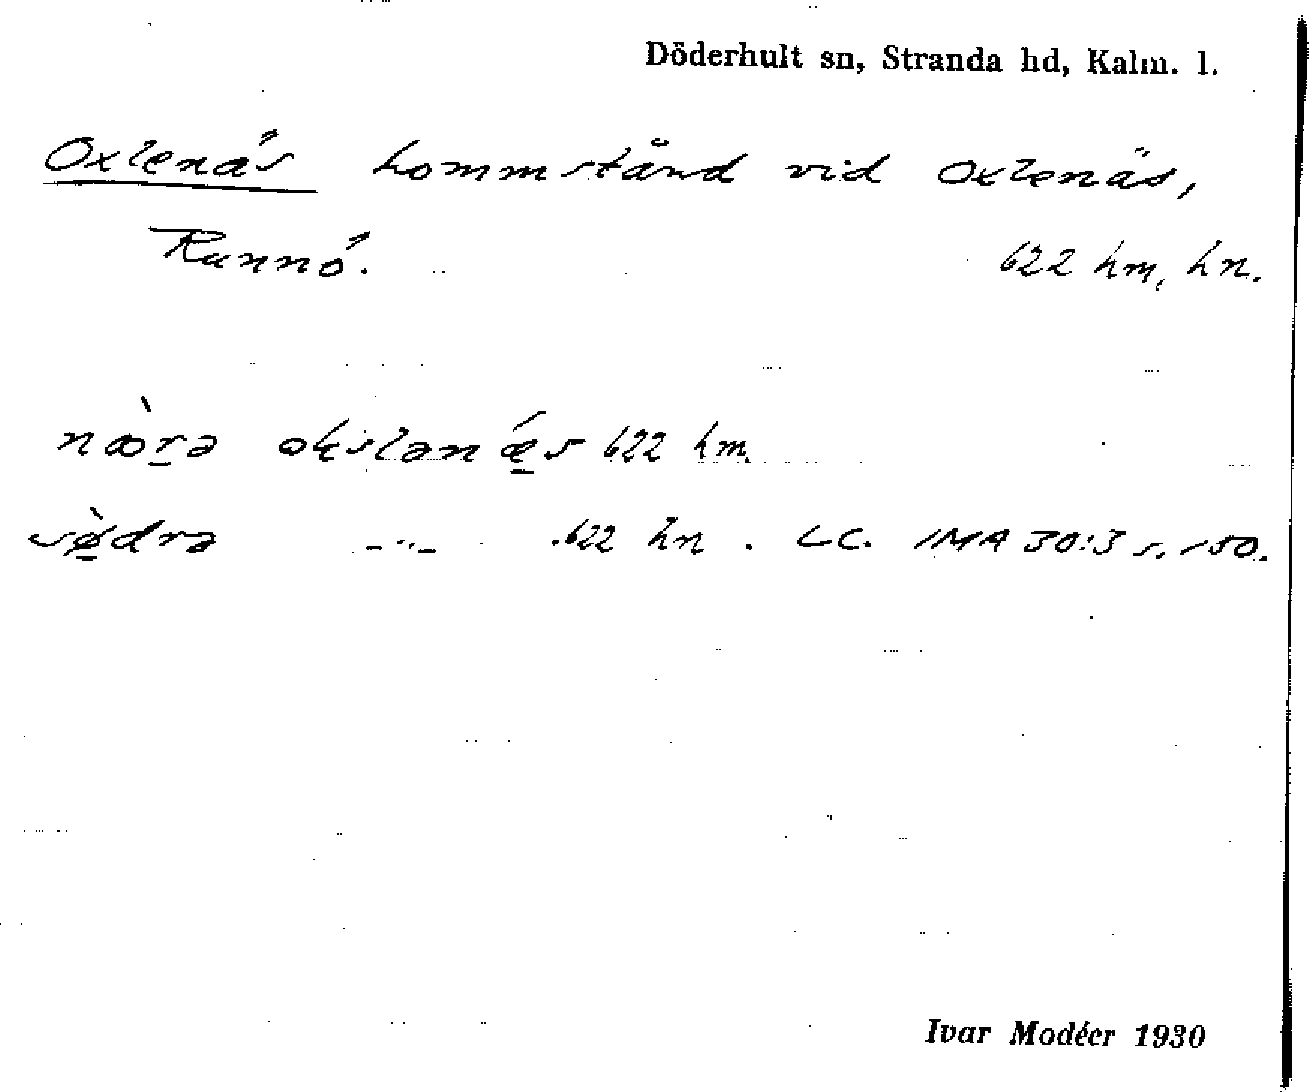 Döderhult sn, Stranda hd, Kalm. l.
Oxlenäs hommstånd vid Oxlenäs,
Runnö. 622 hm, hn.
nœ̀rə okslənǽs 622 hm.
sø̀drə -"- 622 hn. LC. IMA 30:3 s. 150.
Ivar Modéer 1930